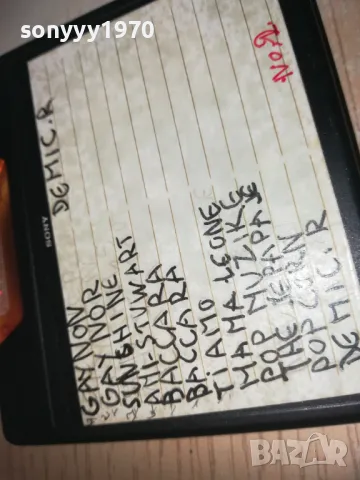 sonyyy1970
No2.
DE MIC.R
SONY
GAYNOV
GAY NOR
SUNSHINE
AMI-STUWART
BACCARA
BACCARA
TIAMO
MAMA LEONE
POP MUZIKE
THE
POP CORN
DE MIC.R
bazar.bg